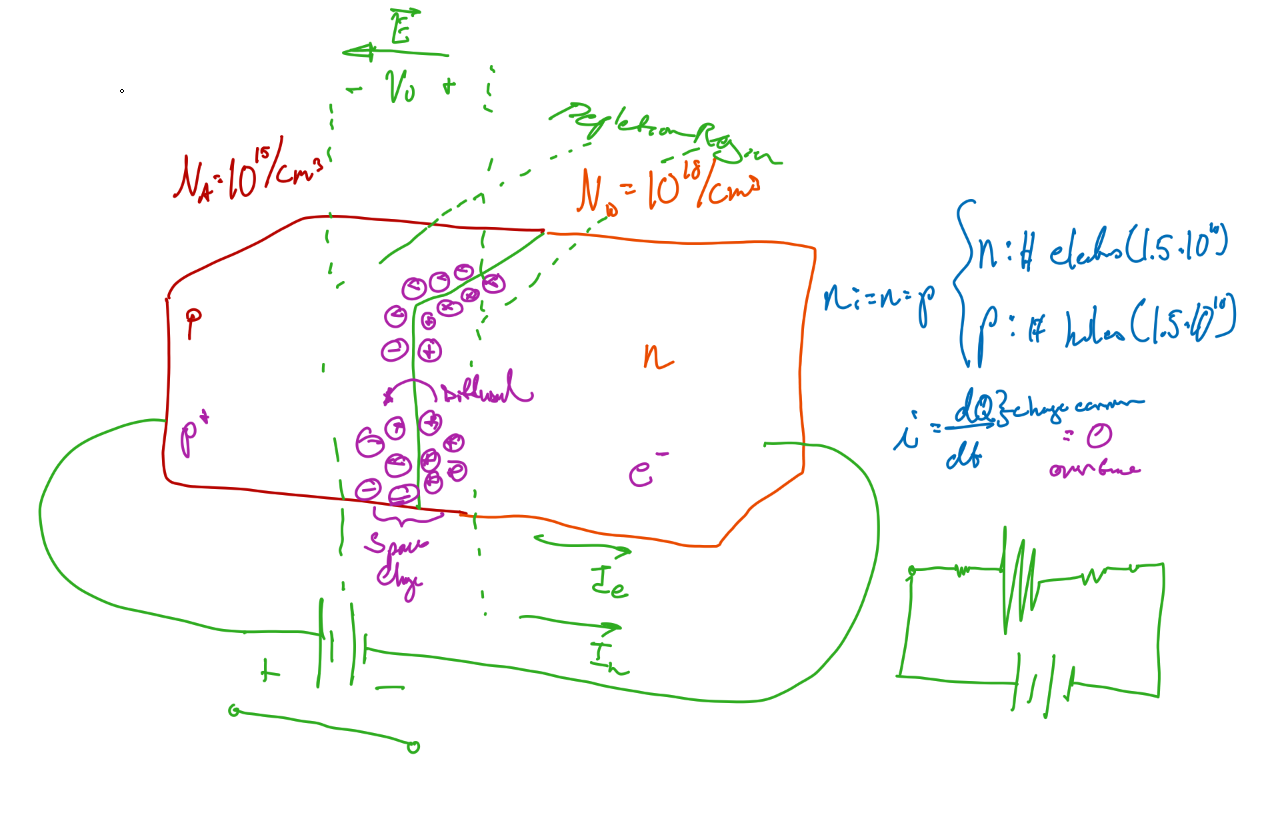 E
- V₀ +
Depletion Region
N_A = 10^15/cm³
N_D = 10^18/cm³
p
n
p⁺
e⁻
Diffusion
Space
Charge
I_e
I_h
+ −
ni = n = p
n : # electrons (1.5·10^10)
p : # holes (1.5·10^10)
i = dQ/dt } charge carriers
= 0
over time